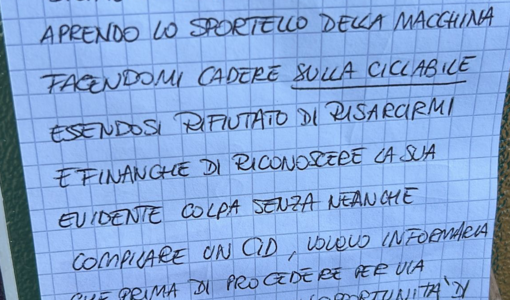 APRENDO LO SPORTELLO DELLA MACCHINA
FACENDOMI CADERE SULLA CICLABILE
ESSENDOSI RIFIUTATO DI RISARCIRMI
E FINANCHE DI RICONOSCERE LA SUA
EVIDENTE COLPA SENZA NEANCHE
COMPILARE UN CID, VOLEVO INFORMARLA
CHE PRIMA DI PROCEDERE PER VIA
OPPORTUNITÀ DI